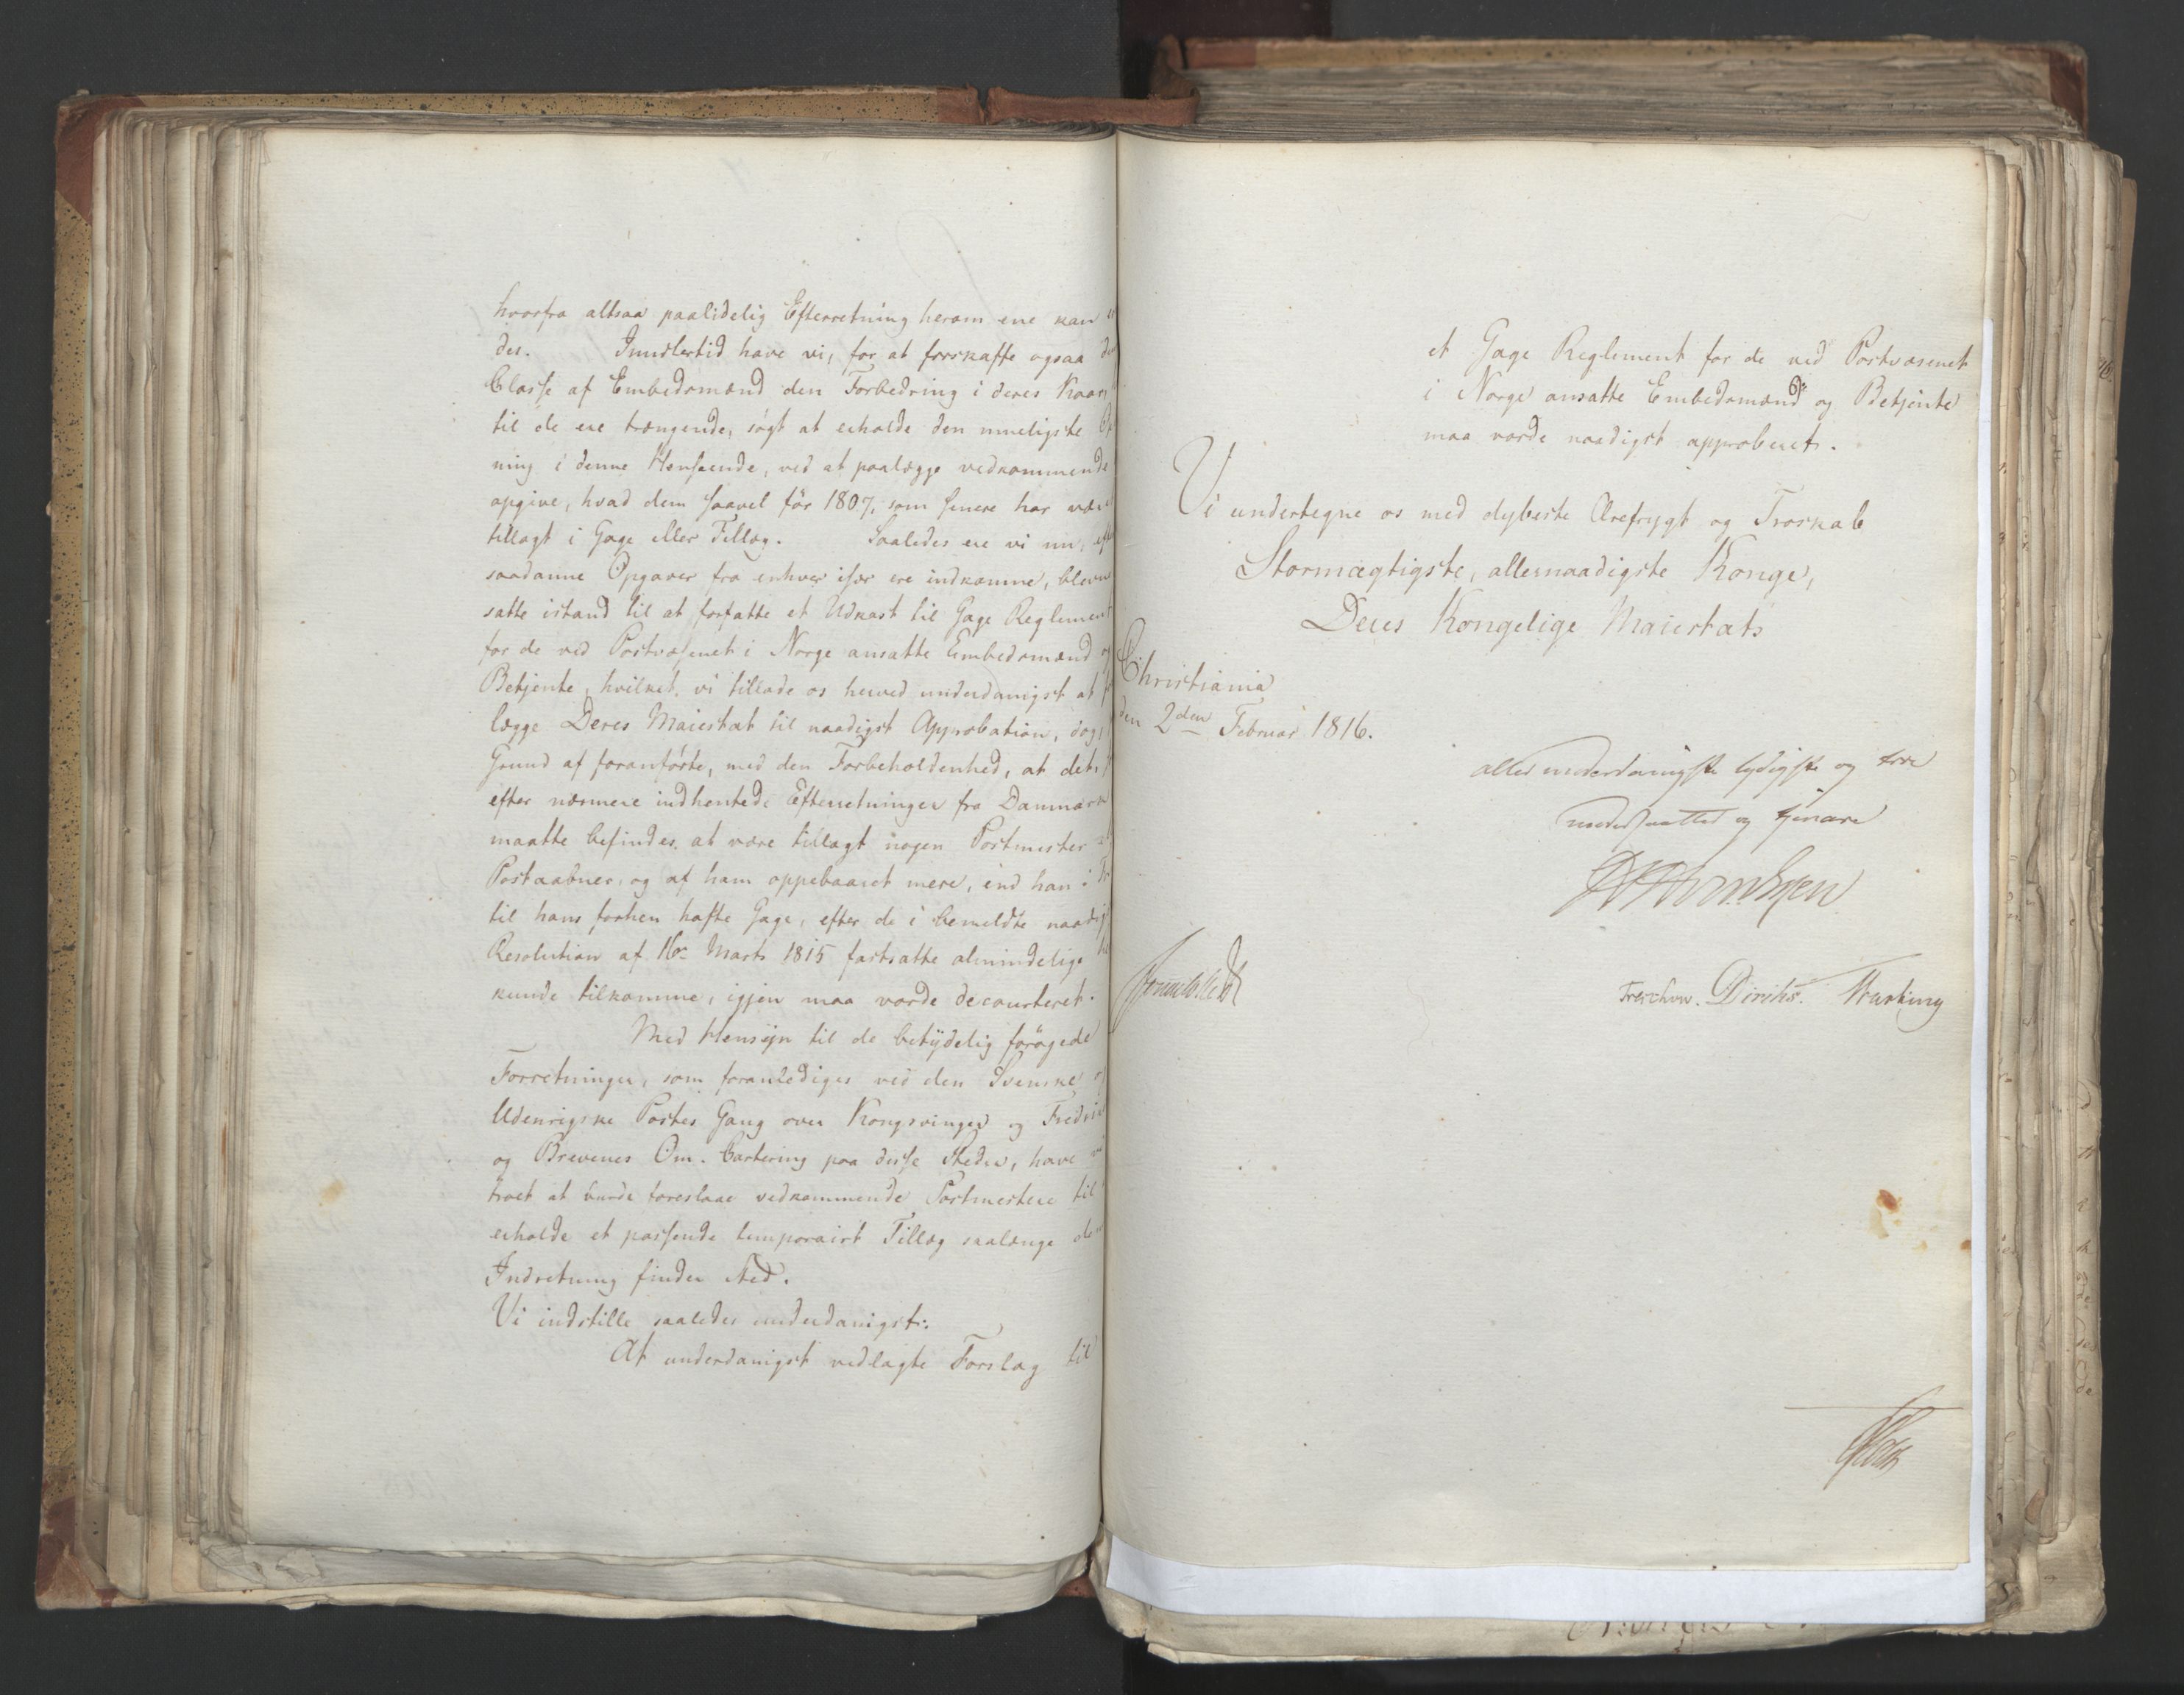 hvorfra altsaa paalidelig Efterretning herom ene kan
des. Imidlertid have vi, for at forskaffe ogsaa den
Classe af Embedsmænd den Forbedring i deres Kaar,
til de ere trængende, søgt at erholde den mueligste
ning i denne Henseende, ved at paalægge vedkommende
opgive, hvad dem saavel før 1807, som senere har være
tillagt i Gage eller Tillæg. Saaledes ere vi nu, efter
saadanne Opgaver fra enhver især ere indkomne, blevne
satte istand til at forfatte et Udkast til Gage Reglement
for de ved Postvæsenet i Norge ansatte Embedsmænd og
Betjente, hvilket vi tillade os herved underdanigst at
lægge Deres Maiestæt til naadigst Approbation, dog,
Grund af foranførte, med den Forbeholdenhed, at det,
efter nærmere indhentede Efterretninger fra Danmark
maatte befindes at være tillagt nogen Postmester
Postaabner, og af ham oppebaaret mere, end han i
til hans forhen hafte Gage, efter de i bemeldte naadig
Resolution af 16de Marts 1815 fastsatte almindelige
kunde tilkomme, igjen maa vorde decourteret.
Med Hensyn til de betydelig forøgede
Forretninger, som foranlediges ved den Svenske
Udenrigske Postes Gang over Kongsvinger og Fredri
og Brevenes Om-Cartering paa disse Steder, have vi
troet at burde foreslaae vedkommende Postmestere til
erholde et passende temporairt Tillæg saalænge den
Indretning finder Sted.
Vi indstille saaledes underdanigst:
At underdanigst vedlagte Forslag til
et Gage Reglement for de ved Postvæsenet
i Norge ansatte Embedsmænd og Betjente
maa vorde naadigst approberet.
Vi undertegne os med dybeste Ærefrygt og Troskab
Stormægtigste, allernaadigste Konge,
Deres Kongelige Maiestæts
Christiania
den 2den Februar 1816.
allerunderdanigste lydigste og troe
undersaatter og tjenere
Treschow. Diriks.